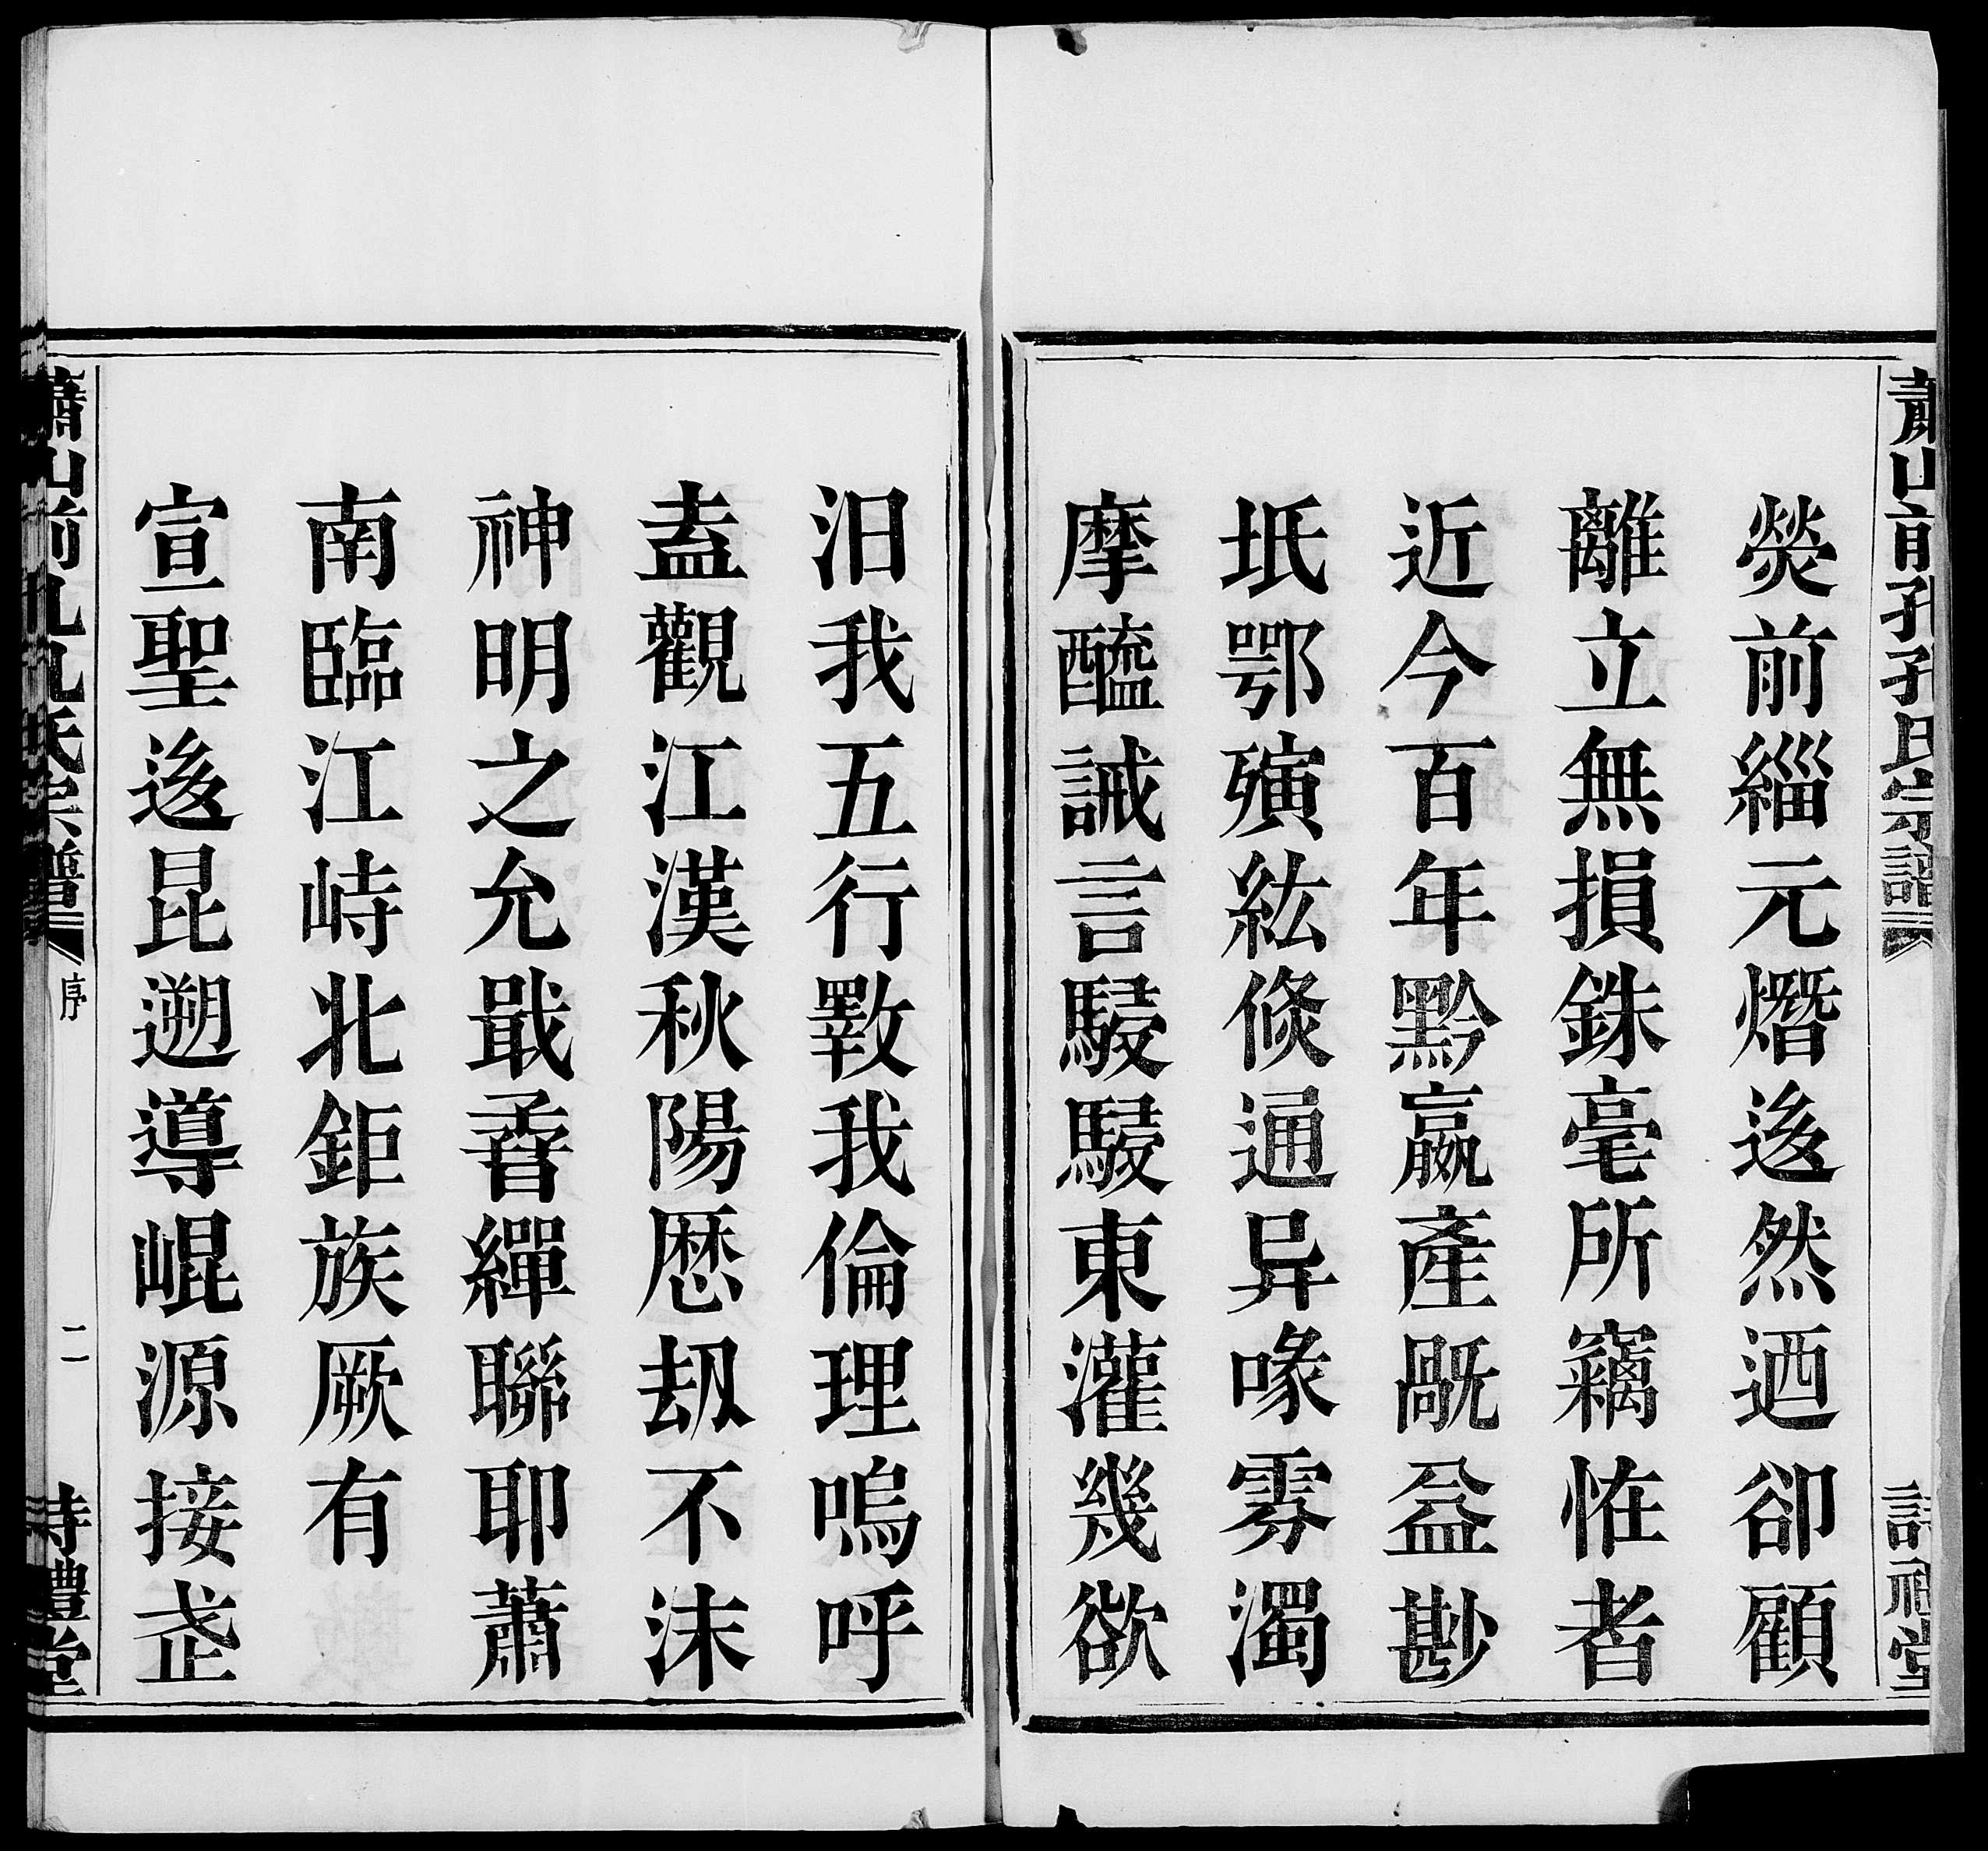 蕭山前孔孔氏宗譜
詩禮堂
熒前緇元熸逡然迺卻顧
離立無損銖毫所竊恠者
近今百年黔嬴產旤益尠
坻鄂㱵紘倏通异喙雰濁
摩醯誡言駸駸東灌幾欲
汨我五行斁我倫理嗚呼
盍觀江漢秋陽歷刼不沫
神明之允戢孴繟聯耶蕭
南臨江峙北鉅族厥有
宣聖逡昆遡導崐源接武
蕭山前孔孔氏宗譜
序
二
詩禮堂